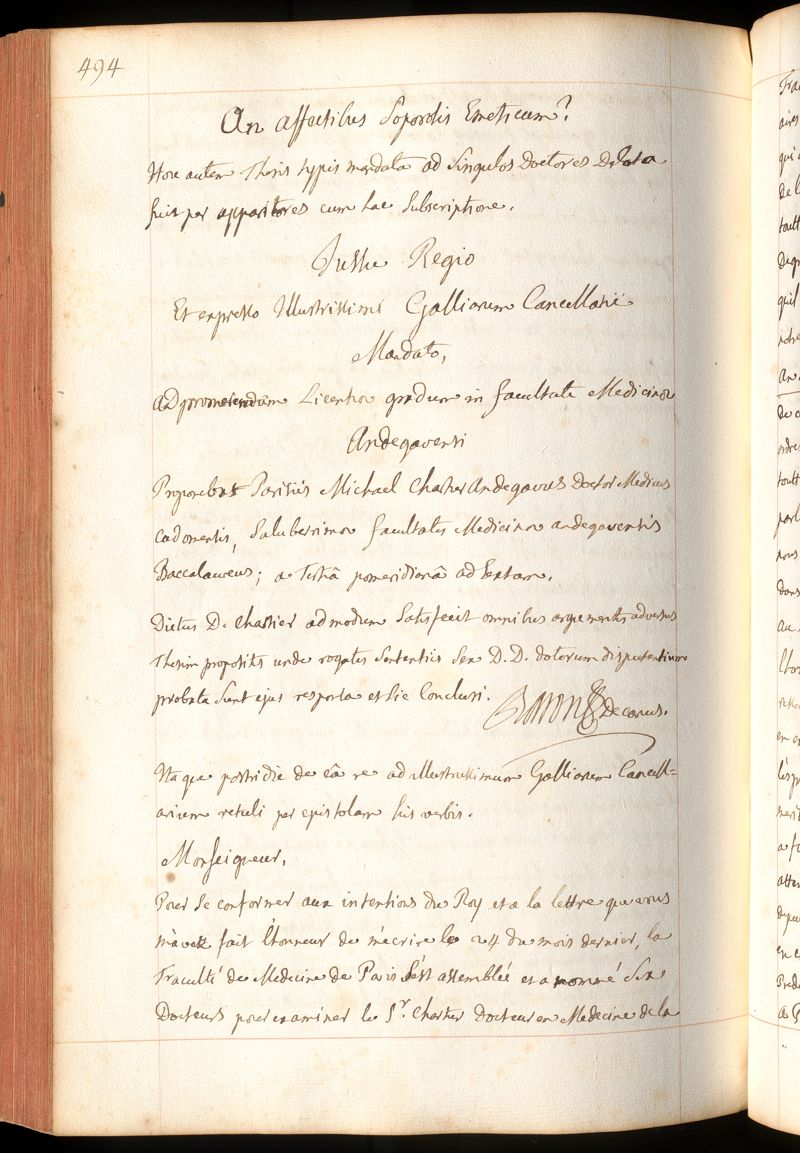 494
An affectibus Soporosis Emeticum?
Hoec autem Thesis typis mandata ad Singulos Doctores Delata
fuit per apparitores cum hac Subscriptione.
Jussu Regio
Et expresso Illustrissimi Galliarum Cancellarii
Mandato,
ad promerendum Licentiae gradum in facultate Medicinae
Andegavensi
Proponebat Parisiis Michael Chartier Andegavus Doctor Medicus
Cadomensis, Saluberrimae facultatis Medicinae andegavensis
Baccalaureus; a Tertiâ pomeridianâ ad Sextam.
Dictus D. Chartier admodum Satisfecit omnibus argumentis adversus
Thesim propositis unde rogatis Sententiis Sex D.D. doctorum disputantium
probata Sunt ejus responsa et Sic Conclusi.
Baron Decanus.
Itaque postridie de eâ re ad illustrissimum Galliarum Cancell=
arium retuli per epistolam his verbis.
Monseigneur,
Pour Se conformer aux intentions du Roy et a la lettre que vous
m'avez fait l'honneur de m'ecrire le 24 du mois dernier, la
Faculté de Medecine de Paris S'est assemblée et a nommé Six
Docteurs pour examiner le Sr. Chartier Docteur en Medecine de la